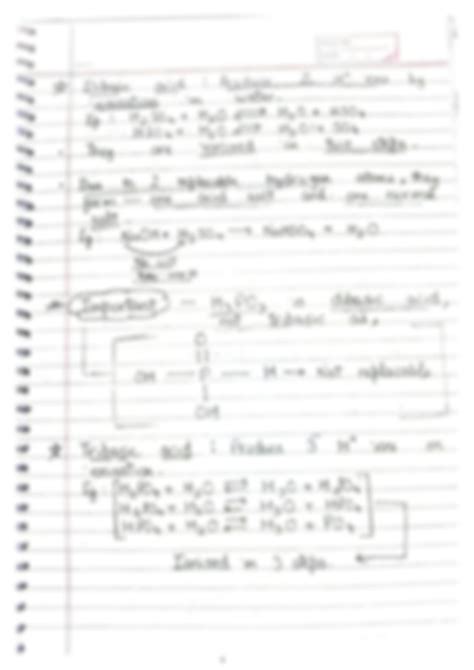 Dibasic acid : Produce 2 H⁺ ions by
in water.
Eg : H₂SO₄ + H₂O ⇌ H₃O + HSO₄
HSO₄ + H₂O ⇌ H₃O + SO₄
They are ionised in two steps.
Due to 2 replaceable hydrogen atoms, they
form one acid salt and one normal
salt.
Eg : NaOH + H₂SO₄ → NaHSO₄ + H₂O
Important - is dibasic acid,
not tribasic as,
O
OH — P — H → Not replaceable
OH
Tribasic acid : Produces 3 H⁺ ions on
ionisation.
Eg : H₃PO₄ + H₂O ⇌ H₃O + H₂PO₄
H₂PO₄ + H₂O ⇌ H₃O + HPO₄
HPO₄ + H₂O ⇌ H₃O + PO₄
Ionised in 3 steps.